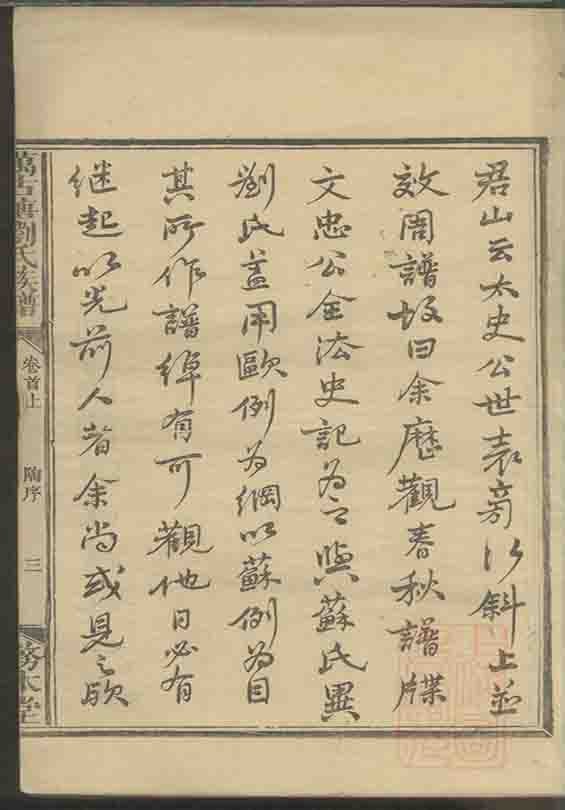 君山云太史公世表旁行斜上並
效周譜故曰余歷觀春秋譜牒
文忠公全法史記為之與蘇氏異
劉氏蓋用歐例為綱以蘇例為目
其所作譜綽有可觀他日必有
继起以光前人者余尚或見之歟
萬古塘劉氏族譜
卷首上 陶序 三
務本堂